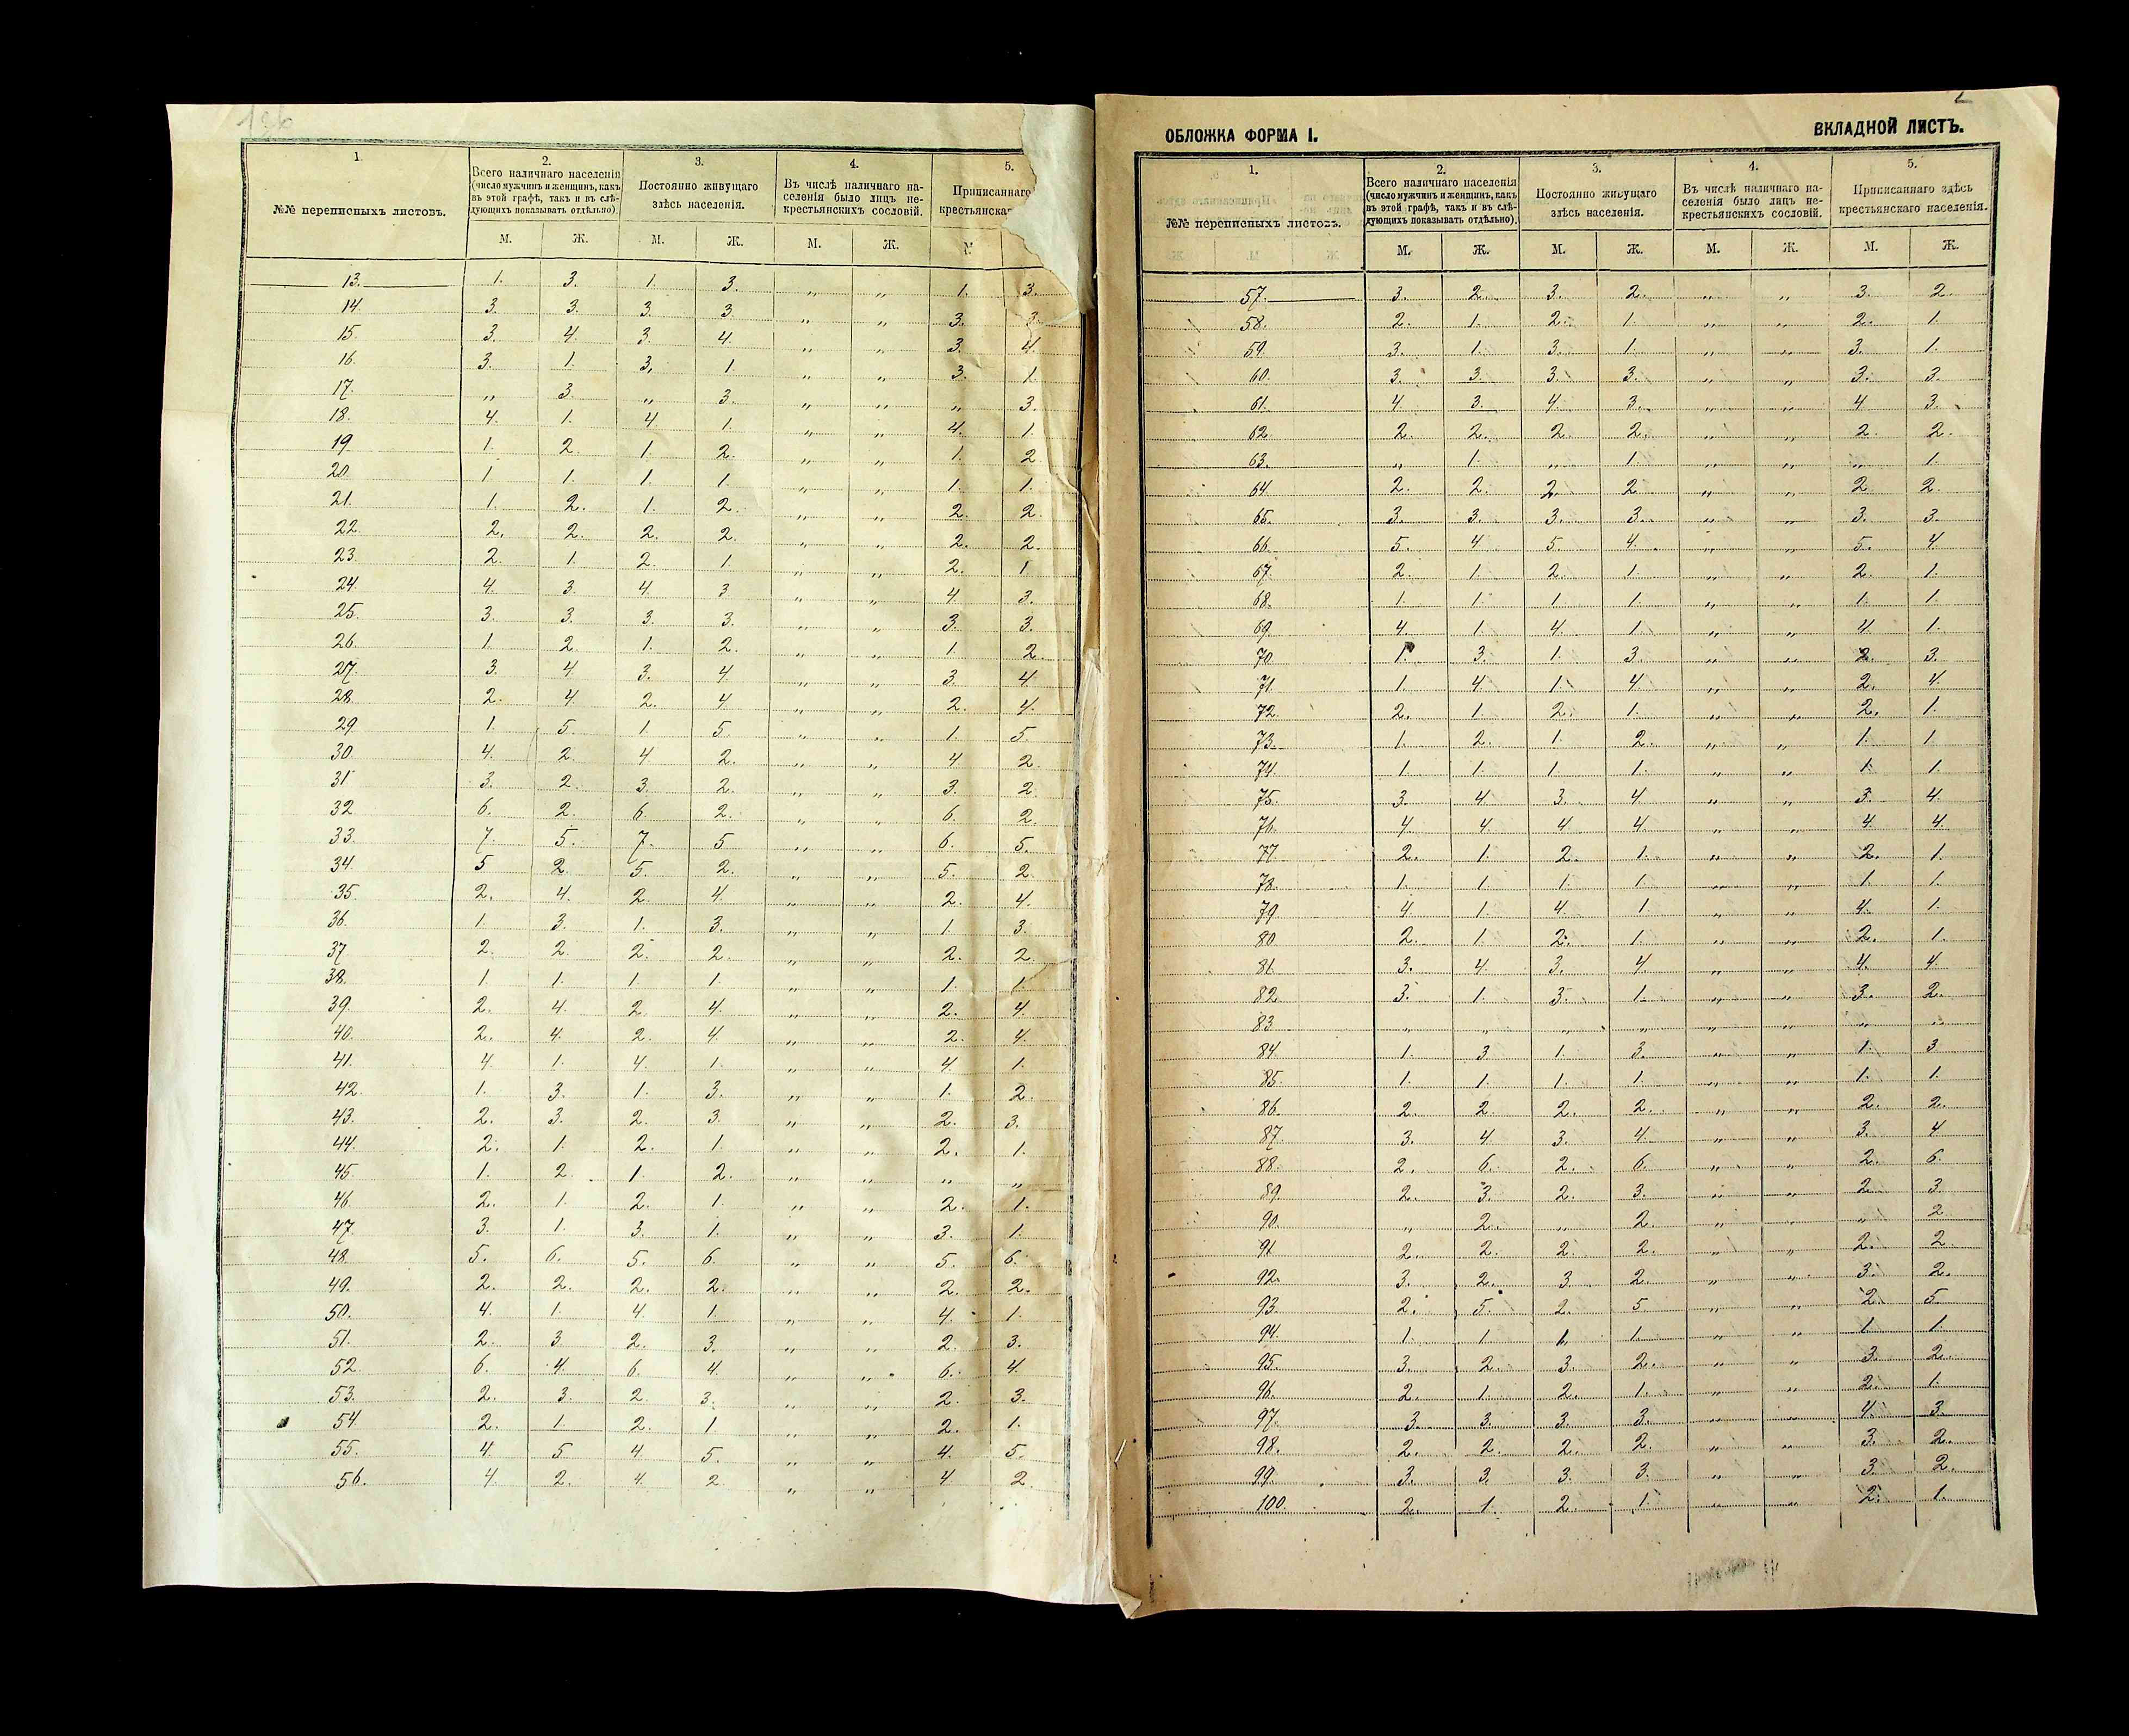 1.
2.
3.
4.
5.
№№ переписныхъ листовъ.
Всего наличнаго населенія
(число мужчинъ и женщинъ, какъ
въ этой графѣ, такъ и въ слѣ-
дующихъ показывать отдѣльно).
Постоянно живущаго
здѣсь населенія.
Въ числѣ наличнаго на-
селенія было лицъ не-
крестьянскихъ сословій.
Приписаннаго
М. Ж. М. Ж. М. Ж.
13. 1. 3. 1. 3. „ „ 1. 3.
14. 3. 3. 3. 3. „ „ 3. 3.
15. 3. 4. 3. 4. „ „ 3. 4.
16. 3. 1. 3. 1. „ „ 3. 1.
17. „ 3. „ 3. „ „ „ 3.
18. 4. 1. 4 1. „ „ 4. 1.
19. 1. 2. 1. 2. „ „ 1. 2
20. 1 1. 1. 1. „ „ 1. 1.
21. 1. 2. 1. 2. „ „ 2. 2.
22. 2. 2. 2. 2. „ „ 2. 2.
23. 2. 1. 2. 1. „ „ 2. 1
24. 4. 3. 4. 3 „ „ 4. 3.
25. 3. 3. 3. 3. „ „ 3. 3.
26. 1. 2. 1. 2. „ „ 1. 2.
27. 3. 4. 3. 4. „ „ 3. 4
28. 2. 4. 2. 4 „ „ 2. 4.
29. 1. 5. 1. 5. „ „ 1. 5
30. 4. 2. 4 2. „ „ 4 2.
31 3. 2. 3. 2. „ „ 3. 2.
32. 6. 2. 6. 2. „ „ 6. 2.
33. 7. 5. 7. 5 „ „ 6. 5.
34. 5 2 5. 2. „ „ 5. 2.
35. 2. 4. 2. 4. „ „ 2. 4.
36. 1. 3. 1. 3. „ „ 1. 3.
37 2. 2. 2. 2. „ „ 2. 2.
38. 1. 1. 1 1. „ „ 1. 1.
39. 2. 4. 2. 4. „ „ 2. 4.
40. 2. 4. 2. 4. „ „ 2. 4.
41. 4. 1. 4. 1. „ „ 4. 1.
42. 1. 3. 1. 3. „ „ 1. 2.
43. 2. 3. 2. 3. „ „ 2. 3.
44. 2. 1. 2. 1. „ „ 2. 1.
45. 1. 2. 1 2. „ „ „ „
46. 2. 1. 2. 1. „ „ 2. 1.
47. 3. 1. 3. 1. „ „ 3. 1.
48. 5. 6. 5. 6. „ „ 5. 6.
49. 2. 2. 2. 2. „ „ 2. 2.
50. 4. 1. 4. 1. „ „ 4. 1.
51. 2. 3. 2. 3. „ „ 2. 3.
52. 6. 4. 6. 4. „ „ 6. 4.
53. 2. 3. 2. 3. „ „ 2. 3.
54 2. 1. 2. 1. „ „ 2. 1.
55. 4. 5 4 5. „ „ 4. 5.
56. 4. 2. 4. 2. „ „ 4 2.
ОБЛОЖКА ФОРМА I.
ВКЛАДНОЙ ЛИСТЪ.
1.
2.
3.
4.
5.
№№ переписныхъ листовъ.
Всего наличнаго населенія
(число мужчинъ и женщинъ, какъ
въ этой графѣ, такъ и въ слѣ-
дующихъ показывать отдѣльно).
Постоянно живущаго
здѣсь населенія.
Въ числѣ наличнаго на-
селенія было лицъ не-
крестьянскихъ сословій.
Приписаннаго здѣсь
крестьянскаго населенія.
М. Ж. М. Ж. М. Ж. М. Ж.
57. 3. 2. 3. 2. „ „ 3. 2.
58. 2. 1. 2. 1. „ „ 2. 1.
59. 3. 1. 3. 1. „ „ 3. 1.
60. 3. 3. 3. 3. „ „ 3. 3.
61. 4. 3. 4. 3. „ „ 4 3.
62. 2. 2. 2. 2. „ „ 2. 2.
63. „ 1. „ 1. „ „ „ 1.
64. 2. 2. 2. 2 „ „ 2 2.
65. 3. 3. 3. 3. „ „ 3. 3.
66. 5. 4 5. 4. „ „ 5. 4.
67. 2. 1. 2. 1. „ „ 2. 1.
68. 1. 1. 1. 1. „ „ 1. 1.
69. 4. 1. 4. 1. „ „ 4. 1.
70. 1. 3. 1. 3. „ „ 2. 3.
71. 1. 4. 1. 4. „ „ 2. 4.
72. 2. 1. 2. 1. „ „ 2. 1.
73. 1. 2. 1. 2. „ „ 1. 1.
74. 1. 1. 1. 1. „ „ 1. 1.
75. 3. 4. 3. 4. „ „ 3. 4.
76. 4. 4. 4. 4. „ „ 4. 4.
77. 2. 1. 2. 1. „ „ 2. 1.
78. 1. 1. 1. 1. „ „ 1. 1.
79 4. 1. 4. 1. „ „ 4. 1.
80 2. 1. 2. 1. „ „ 2. 1.
81. 3. 4. 3. 4. „ „ 4. 4.
82 3. 1. 3. 1. „ „ 3. 2.
83 „ „ „ „ „ „ „ „
84. 1. 3 1. 3. „ „ 1. 3
85. 1. 1. 1. 1. „ „ 1. 1.
86. 2. 2. 2. 2. „ „ 2. 2.
87. 3. 4. 3. 4. „ „ 3. 4
88. 2. 6. 2. 6. „ „ 2. 6.
89. 2. 3. 2. 3. „ „ 2. 3
90. „ 2. „ 2. „ „ „ 2
91 2. 2. 2. 2. „ „ 2. 2.
92. 3. 2. 3. 2. „ „ 3. 2.
93. 2. 5. 2. 5. „ „ 2. 5.
94. 1. 1. 1. 1. „ „ 1. 1.
95. 3. 2. 3. 2. „ „ 3. 2.
96. 2. 1. 2. 1. „ „ 2. 1.
97. 3. 3. 3. 3. „ „ 4. 3.
98. 2. 2. 2. 2. „ „ 3. 2.
99. 3. 3. 3. 3. „ „ 3. 2.
100. 2. 1. 2. 1. „ „ 2. 1.